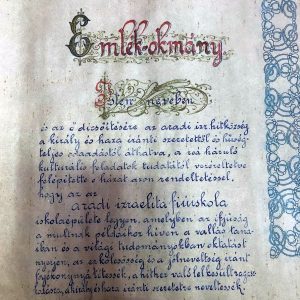 Emlék-okmány
Isten nevében
és az ő dicsőítésére az aradi izr. hitközség
a király és haza iránti szeretettől és hűség-
teljes odaadástól áthatva, a reá háruló
kulturális feladatok tudatától vezéreltetve
felépítette e házat azon rendeltetéssel,
hogy az az
aradi izraelita fiúiskola
iskolaépülete legyen, amelyben az ifjúság
a multnak példáihoz híven a vallás tanai-
ban és a világi tudományokban oktatást
nyerjen, az erkölcsösség és a jólneveltség iránt
fogékonnyá tétessék, a hithez való tel
a király és haza iránti szeretetre neveltessék.